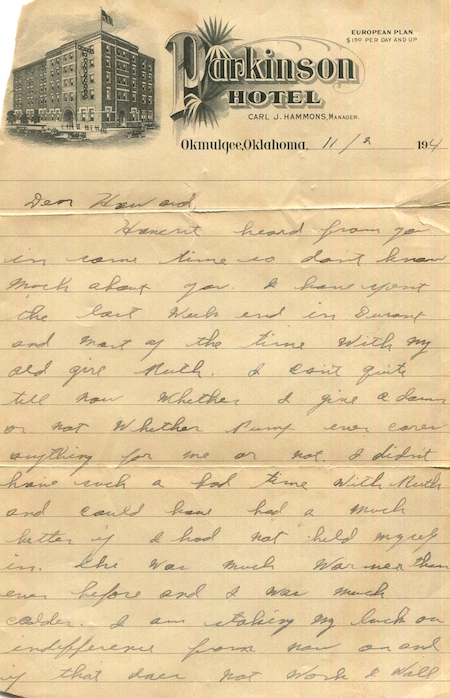 EUROPEAN PLAN
$1.50 PER DAY AND UP
Parkinson
HOTEL
CARL J. HAMMONS, MANAGER.
Okmulgee, Oklahoma, 11/2 194
Dear Howard,
Haven't heard from you
in some time so don't know
much about you. I have spent
the last Week end in Durant
and most of the time With My
old girl Ruth. I can't quite
tell now Whether I give a damn
or not Whether ever cares
anything for me or not. I didn't
have such a bad time With Ruth
and could have had a much
better if I had not held myself
in. She Was much Warmer than
ever before and I Was much
colder. I am staking My luck on
indifference from now on and
if that does not Work I Will